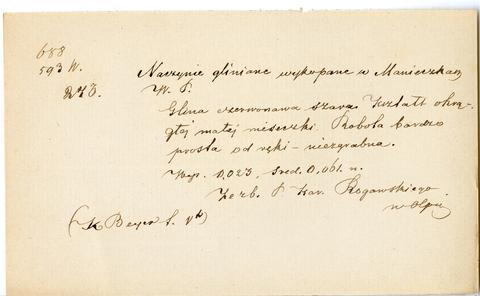 688
593 W.
Naczynie gliniane wykopane w Manieczkach
W. P.
Glina czerwonawa szara. Kształt okrą-
głej małej miseczki. Robota bardzo
prosta od ręki - niezgrabna.
Wys. 0,023, Śred. 0,061. n.
Ze zb. P. Kar. Rogawskiego
w Olpin
(K Beyer S.